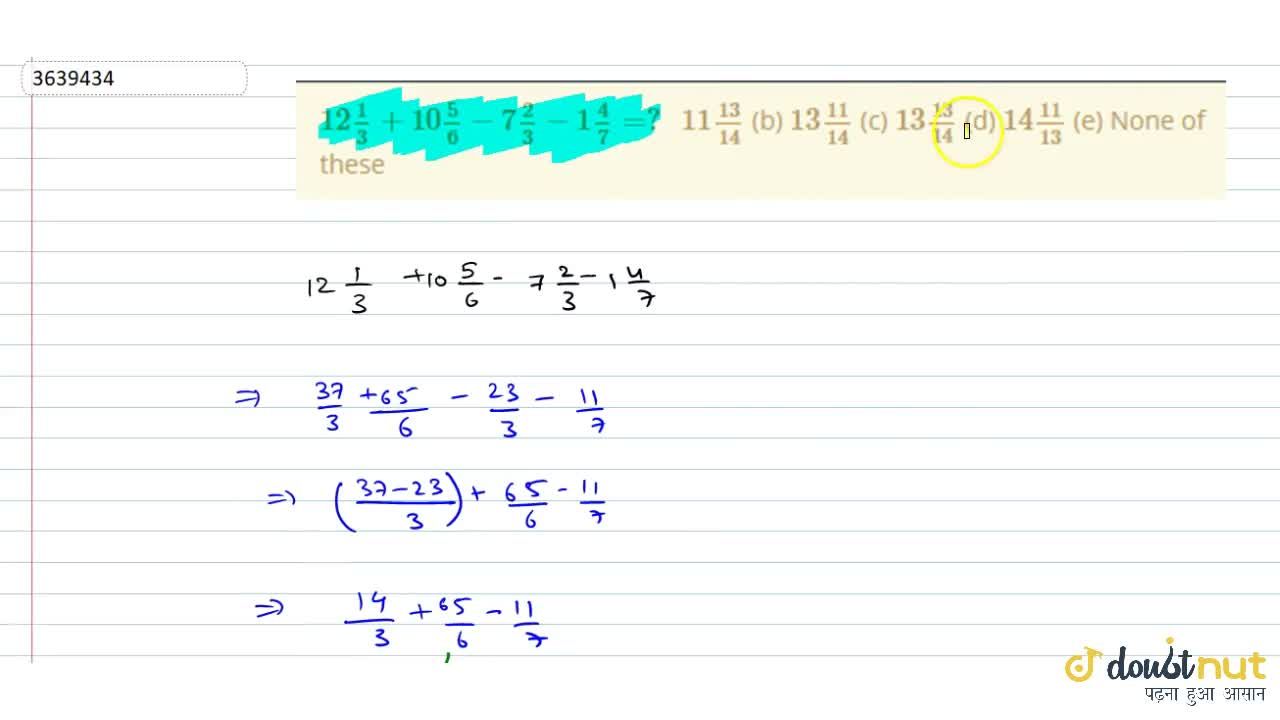 3639434
12 1/3 + 10 5/6 − 7 2/3 − 1 4/7 =? 11 13/14 (b) 13 11/14 (c) 13 13/14 (d) 14 11/13 (e) None of
these
12 1/3 +10 5/6 - 7 2/3 - 1 4/7
⇒ 37/3 + 65/6 - 23/3 - 11/7
⇒ (37-23/3) + 65/6 - 11/7
⇒ 14/3 + 65/6 - 11/7
doubtnut
पढ़ना हुआ आसान